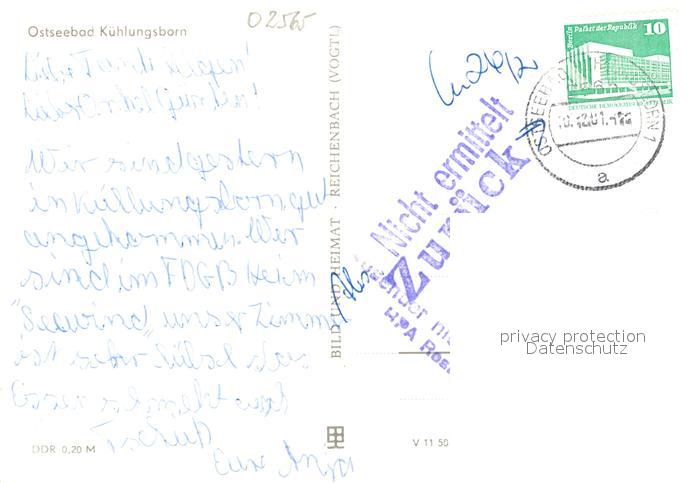 02565
Ostseebad Kühlungsborn
Liebe Tante
Lieber Onkel Günten!
Wir sind gestern
in Küllungsborn gut
angekommen. Wir
sind im FDGB Heim
"Seewind" unser Zimmer
ist sehr hübsch das
Essen schmekt auch
Tschüß
Eure Anja
DDR 0,20 M
BILD UND HEIMAT REICHENBACH (VOGTL)
V 11 50
Nicht ermittelt
Zurück
HPA
Berlin Palast der Republik
10
DEUTSCHE DEMOKRATISCHE REPUBLIK
a
privacy protection
Datenschutz